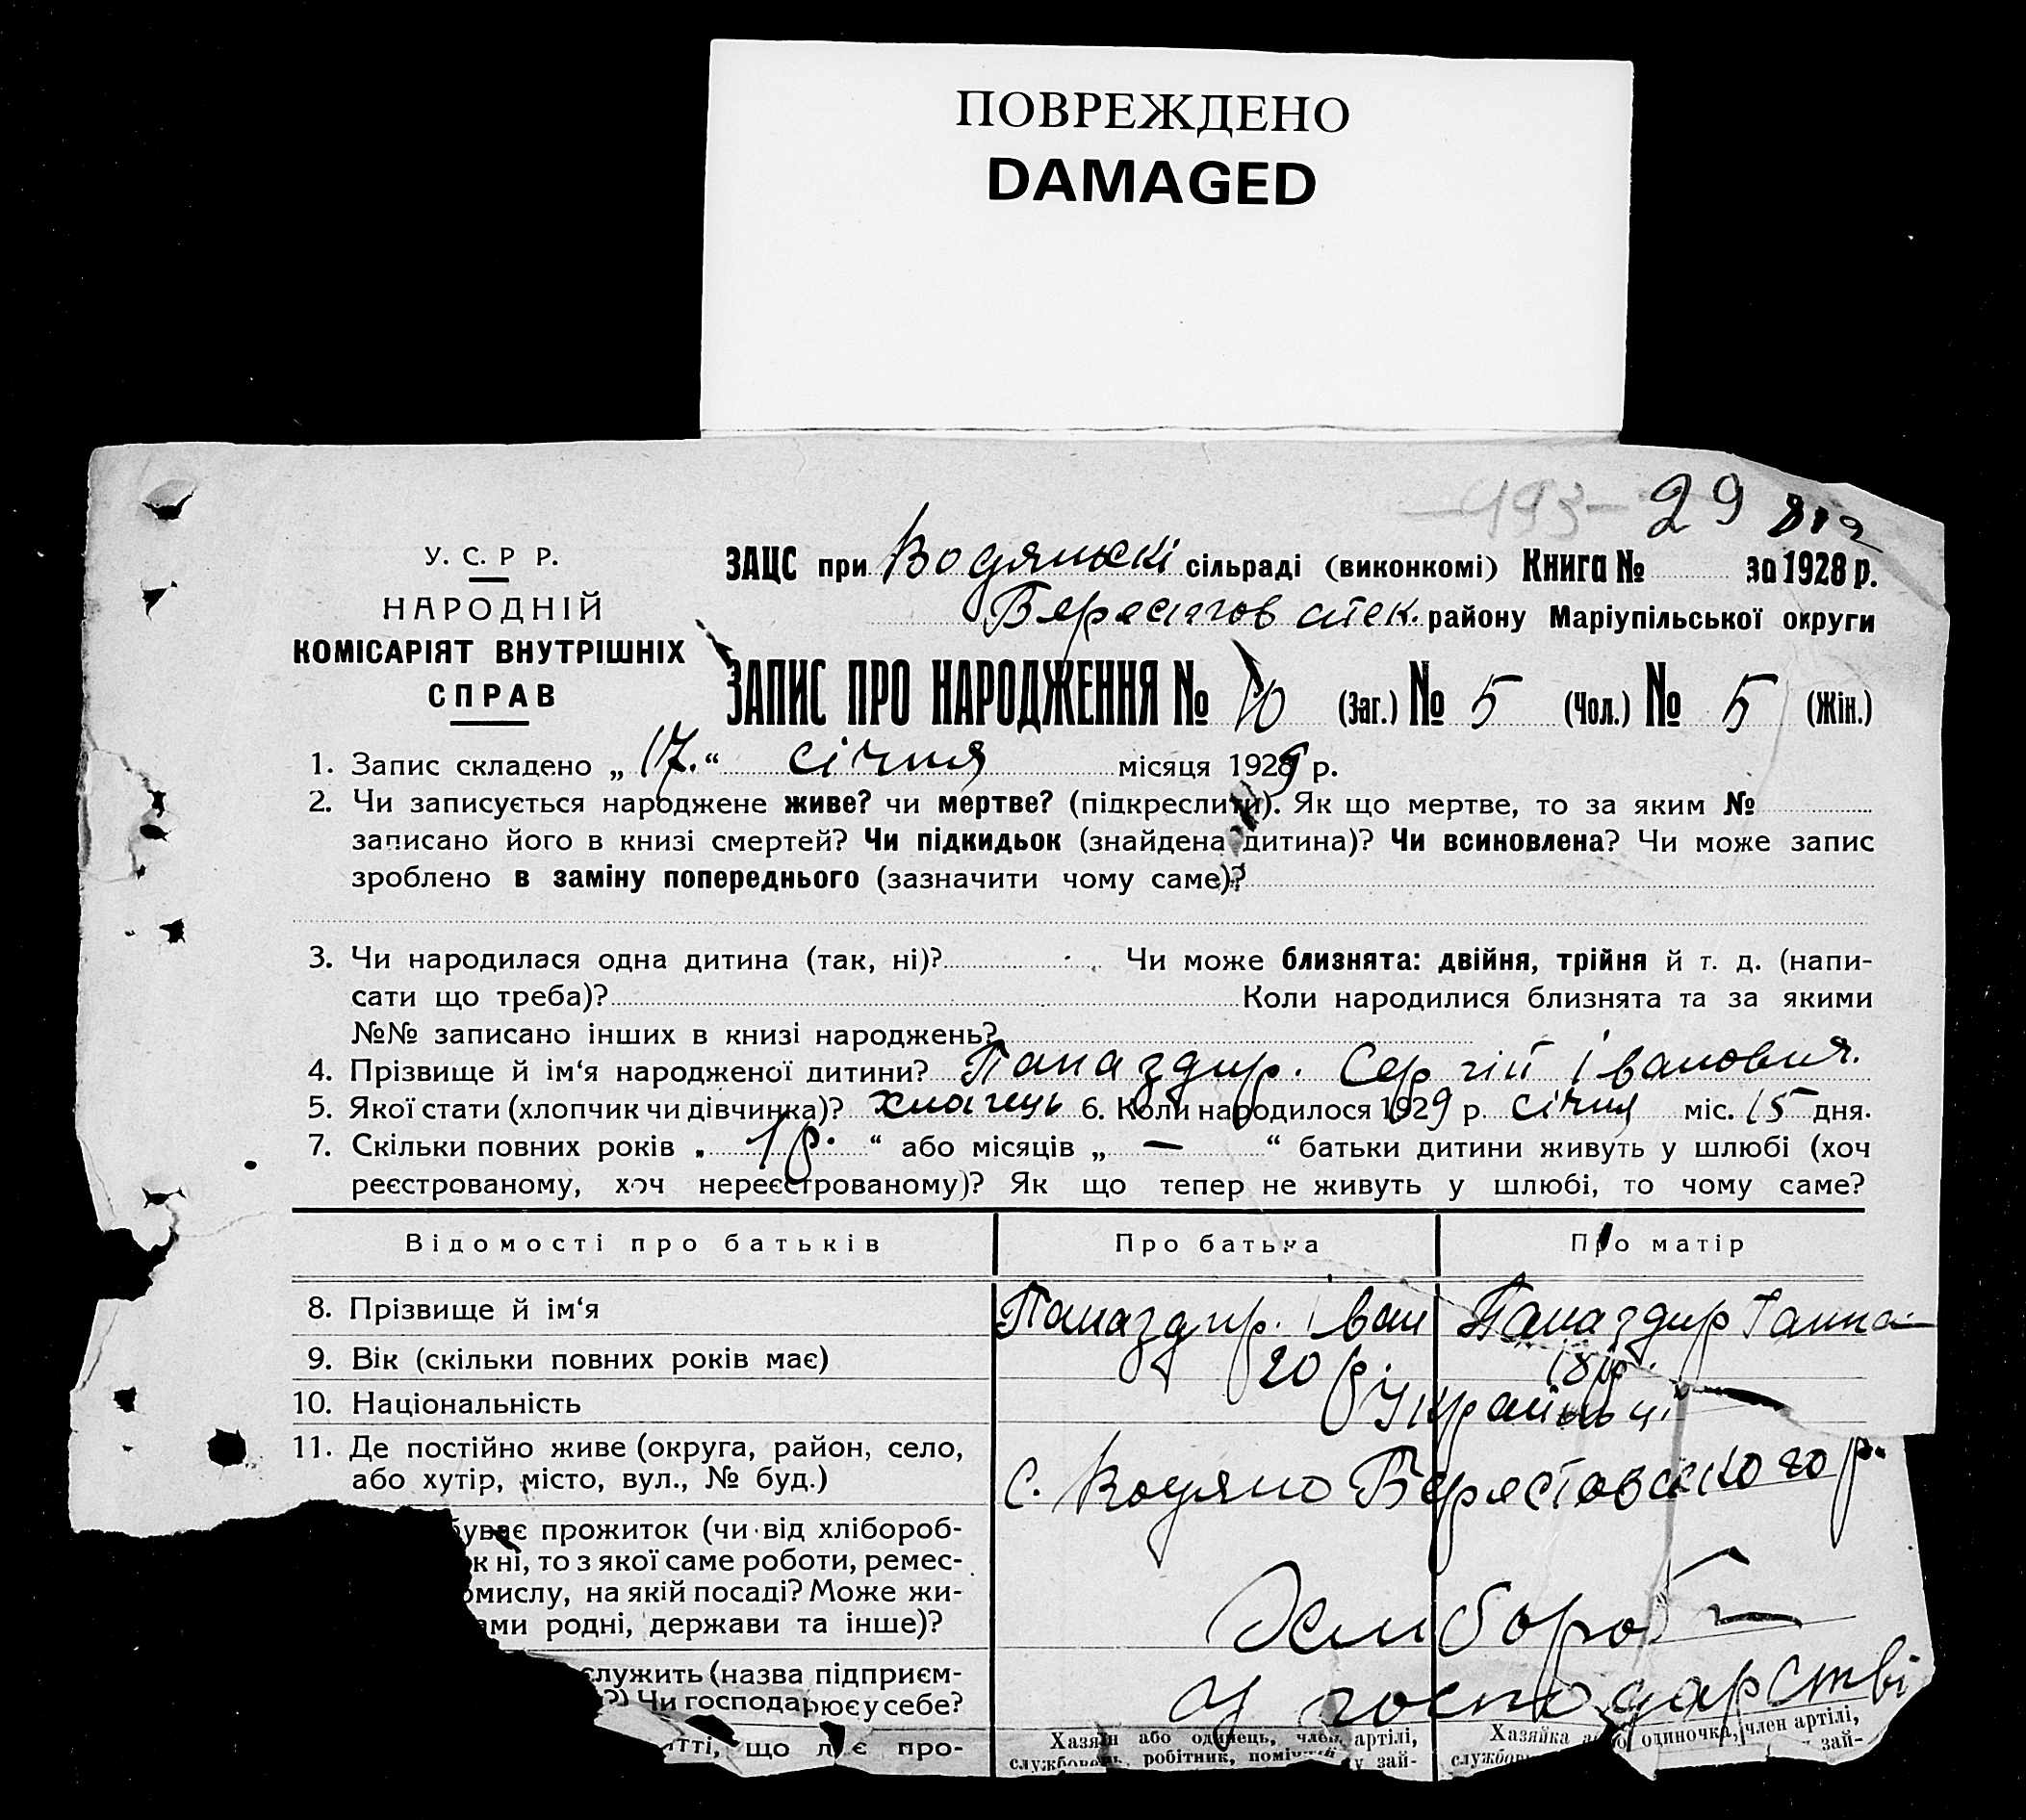 ПОВРЕЖДЕНО
DAMAGED
-493- 29
У. С. Р Р.
НАРОДНІЙ
КОМІСАРІЯТ ВНУТРІШНІХ
СПРАВ
ЗАЦС при Водянскі сільраді (виконкомі) Книга № за 1928 р.
району Маріупільської округи
ЗАПИС ПРО НАРОДЖЕННЯ № 10 (Заг.) № 5 (Чол.) № 5 (Жін.)
1. Запис складено „ 17. “ січня місяця 1929 р.
2. Чи записується народжене живе? чи мертве? (підкреслити). Як що мертве, то за яким №
записано його в книзі смертей? Чи підкидьок (знайдена дитина)? Чи всиновлена? Чи може запис
зроблено в заміну попереднього (зазначити чому саме)?
3. Чи народилася одна дитина (так, ні)? Чи може близнята: двійня, трійня й т. д. (напи-
сати що треба)? Коли народилися близнята та за якими
№№ записано інших в книзі народжень?
4. Прізвище й ім‘я народженої дитини? Папаздир. Сергій Івановия.
5. Якої стати (хлопчик чи дівчинка)? хлопець 6. Коли народилося 1929 р. січня міс. 15 дня.
7. Скільки повних років „ 1 р. “ або місяців „ — “ батьки дитини живуть у шлюбі (хоч
реєстрованому, хоч нереєстрованому)? Як що тепер не живуть у шлюбі, то чому саме?
Відомості про батьків Про батька Про матір
8. Прізвище й ім‘я Папаздир. Іван Папаздир Ганна
9. Вік (скільки повних років має) 20 р. 18 р.
10. Національність Україньці
11. Де постійно живе (округа, район, село,
або хутір, місто, вул., № буд.) с. Водяно Берестовського р.
буває прожиток (чи від хлібороб-
к ні, то з якої саме роботи, ремес-
омислу, на якій посаді? Може жи-
ами родні, держави та інше)? Хлибороб
служить (назва підприєм-
?) Чи господарює у себе? у господарстві
тті, що дає про-
Хазяїн або одинець, член артілі,
службовець, робітник, поміч у зай-
Хазяйка або одиночка, член артілі,
службов зай-